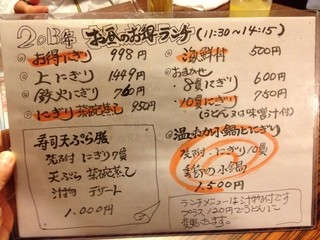 2013年 お昼のお得ランチ (11:30〜14:15)
お得にぎり 998円
上にぎり 1449円
鉄火にぎり 760円
にぎり茶碗蒸し 950円
寿司天ぷら膳
先付 にぎり7貫
天ぷら 茶碗蒸し
汁物 デザート
1.000円
海鮮丼 500円
おまかせ
8貫にぎり 600円
10貫にぎり 750円
(うどん又は味噌汁付)
温ったか小鍋とにぎり
先付・にぎり10貫
季節の小鍋
1.500円
ランチメニューは汁物付です
プラス120円でうどんに
変更出来ます。